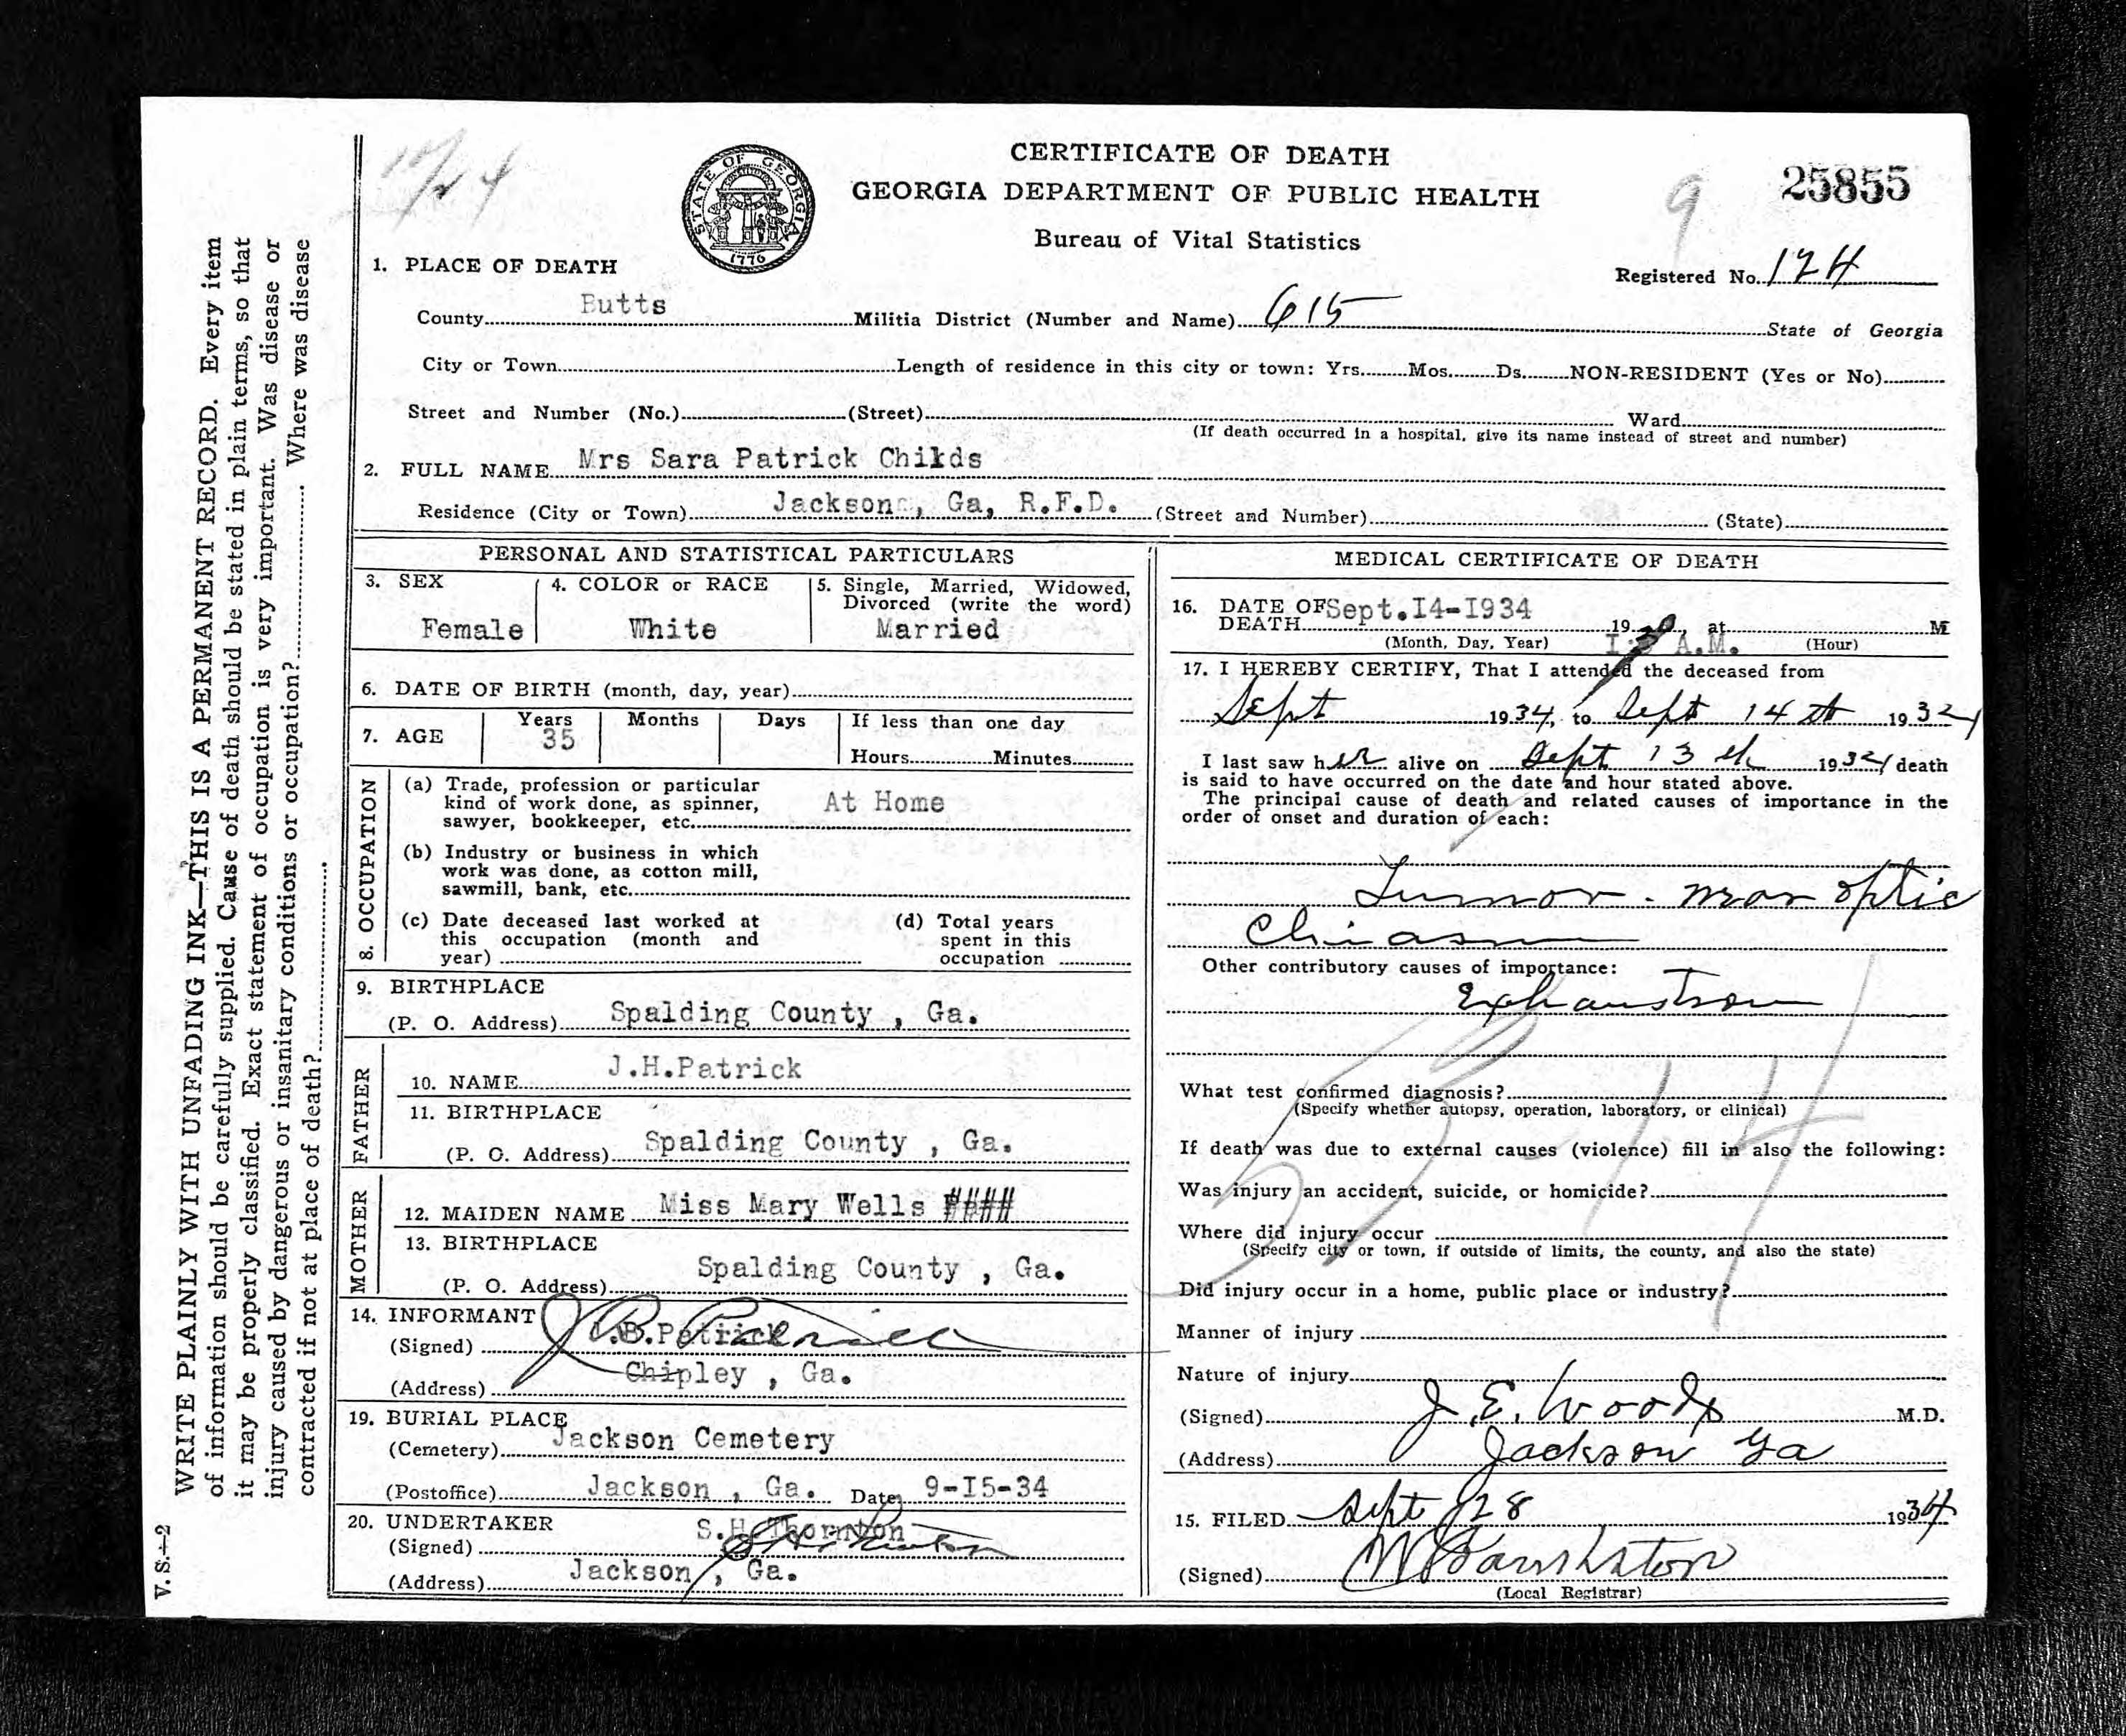 CERTIFICATE OF DEATH
GEORGIA DEPARTMENT OF PUBLIC HEALTH
Bureau of Vital Statistics
STATE OF GEORGIA
1776
9
25855
Registered No. 124
1. PLACE OF DEATH
County Butts Militia District (Number and Name) 615 State of Georgia
City or Town Length of residence in this city or town: Yrs. Mos. Ds. NON-RESIDENT (Yes or No)
Street and Number (No.) (Street) Ward
(If death occurred in a hospital, give its name instead of street and number)
2. FULL NAME Mrs Sara Patrick Childs
Residence (City or Town) Jackson , Ga, R.F.D. (Street and Number) (State)
PERSONAL AND STATISTICAL PARTICULARS
3. SEX 4. COLOR or RACE 5. Single, Married, Widowed,
Divorced (write the word)
Female White Married
6. DATE OF BIRTH (month, day, year)
7. AGE Years Months Days If less than one day
35
Hours Minutes
8. OCCUPATION
(a) Trade, profession or particular
kind of work done, as spinner,
sawyer, bookkeeper, etc. At Home
(b) Industry or business in which
work was done, as cotton mill,
sawmill, bank, etc.
(c) Date deceased last worked at
this occupation (month and
year)
(d) Total years
spent in this
occupation
9. BIRTHPLACE
(P. O. Address) Spalding County , Ga.
FATHER
10. NAME J.H.Patrick
11. BIRTHPLACE
(P. O. Address) Spalding County , Ga.
MOTHER
12. MAIDEN NAME Miss Mary Wells ####
13. BIRTHPLACE
(P. O. Address) Spalding County , Ga.
14. INFORMANT
(Signed) J.B.Patrick
(Address) Chipley , Ga.
19. BURIAL PLACE
(Cemetery) Jackson Cemetery
(Postoffice) Jackson , Ga. Date 9-I5-34
20. UNDERTAKER
(Signed) S.H.Thornton
(Address) Jackson , Ga.
MEDICAL CERTIFICATE OF DEATH
16. DATE OF DEATH Sept.I4-I934 19 at M
(Month, Day, Year) A.M. (Hour)
17. I HEREBY CERTIFY, That I attended the deceased from
Sept 1934, to Sept 14th 1934
I last saw her alive on Sept 13th 1934 death
is said to have occurred on the date and hour stated above.
The principal cause of death and related causes of importance in the
order of onset and duration of each:
Tumor - near optic
Chiasm
Other contributory causes of importance:
Exhaustion
What test confirmed diagnosis?
(Specify whether autopsy, operation, laboratory, or clinical)
If death was due to external causes (violence) fill in also the following:
Was injury an accident, suicide, or homicide?
Where did injury occur
(Specify city or town, if outside of limits, the county, and also the state)
Did injury occur in a home, public place or industry?
Manner of injury
Nature of injury
(Signed) J.E. Woods M.D.
(Address) Jackson Ga
15. FILED Sept 28 1934
(Signed)
(Local Registrar)
WRITE PLAINLY WITH UNFADING INK—THIS IS A PERMANENT RECORD. Every item
of information should be carefully supplied. Cause of death should be stated in plain terms, so that
it may be properly classified. Exact statement of occupation is very important. Was disease or
injury caused by dangerous or insanitary conditions or occupation? Where was disease
contracted if not at place of death?
V. S.—2